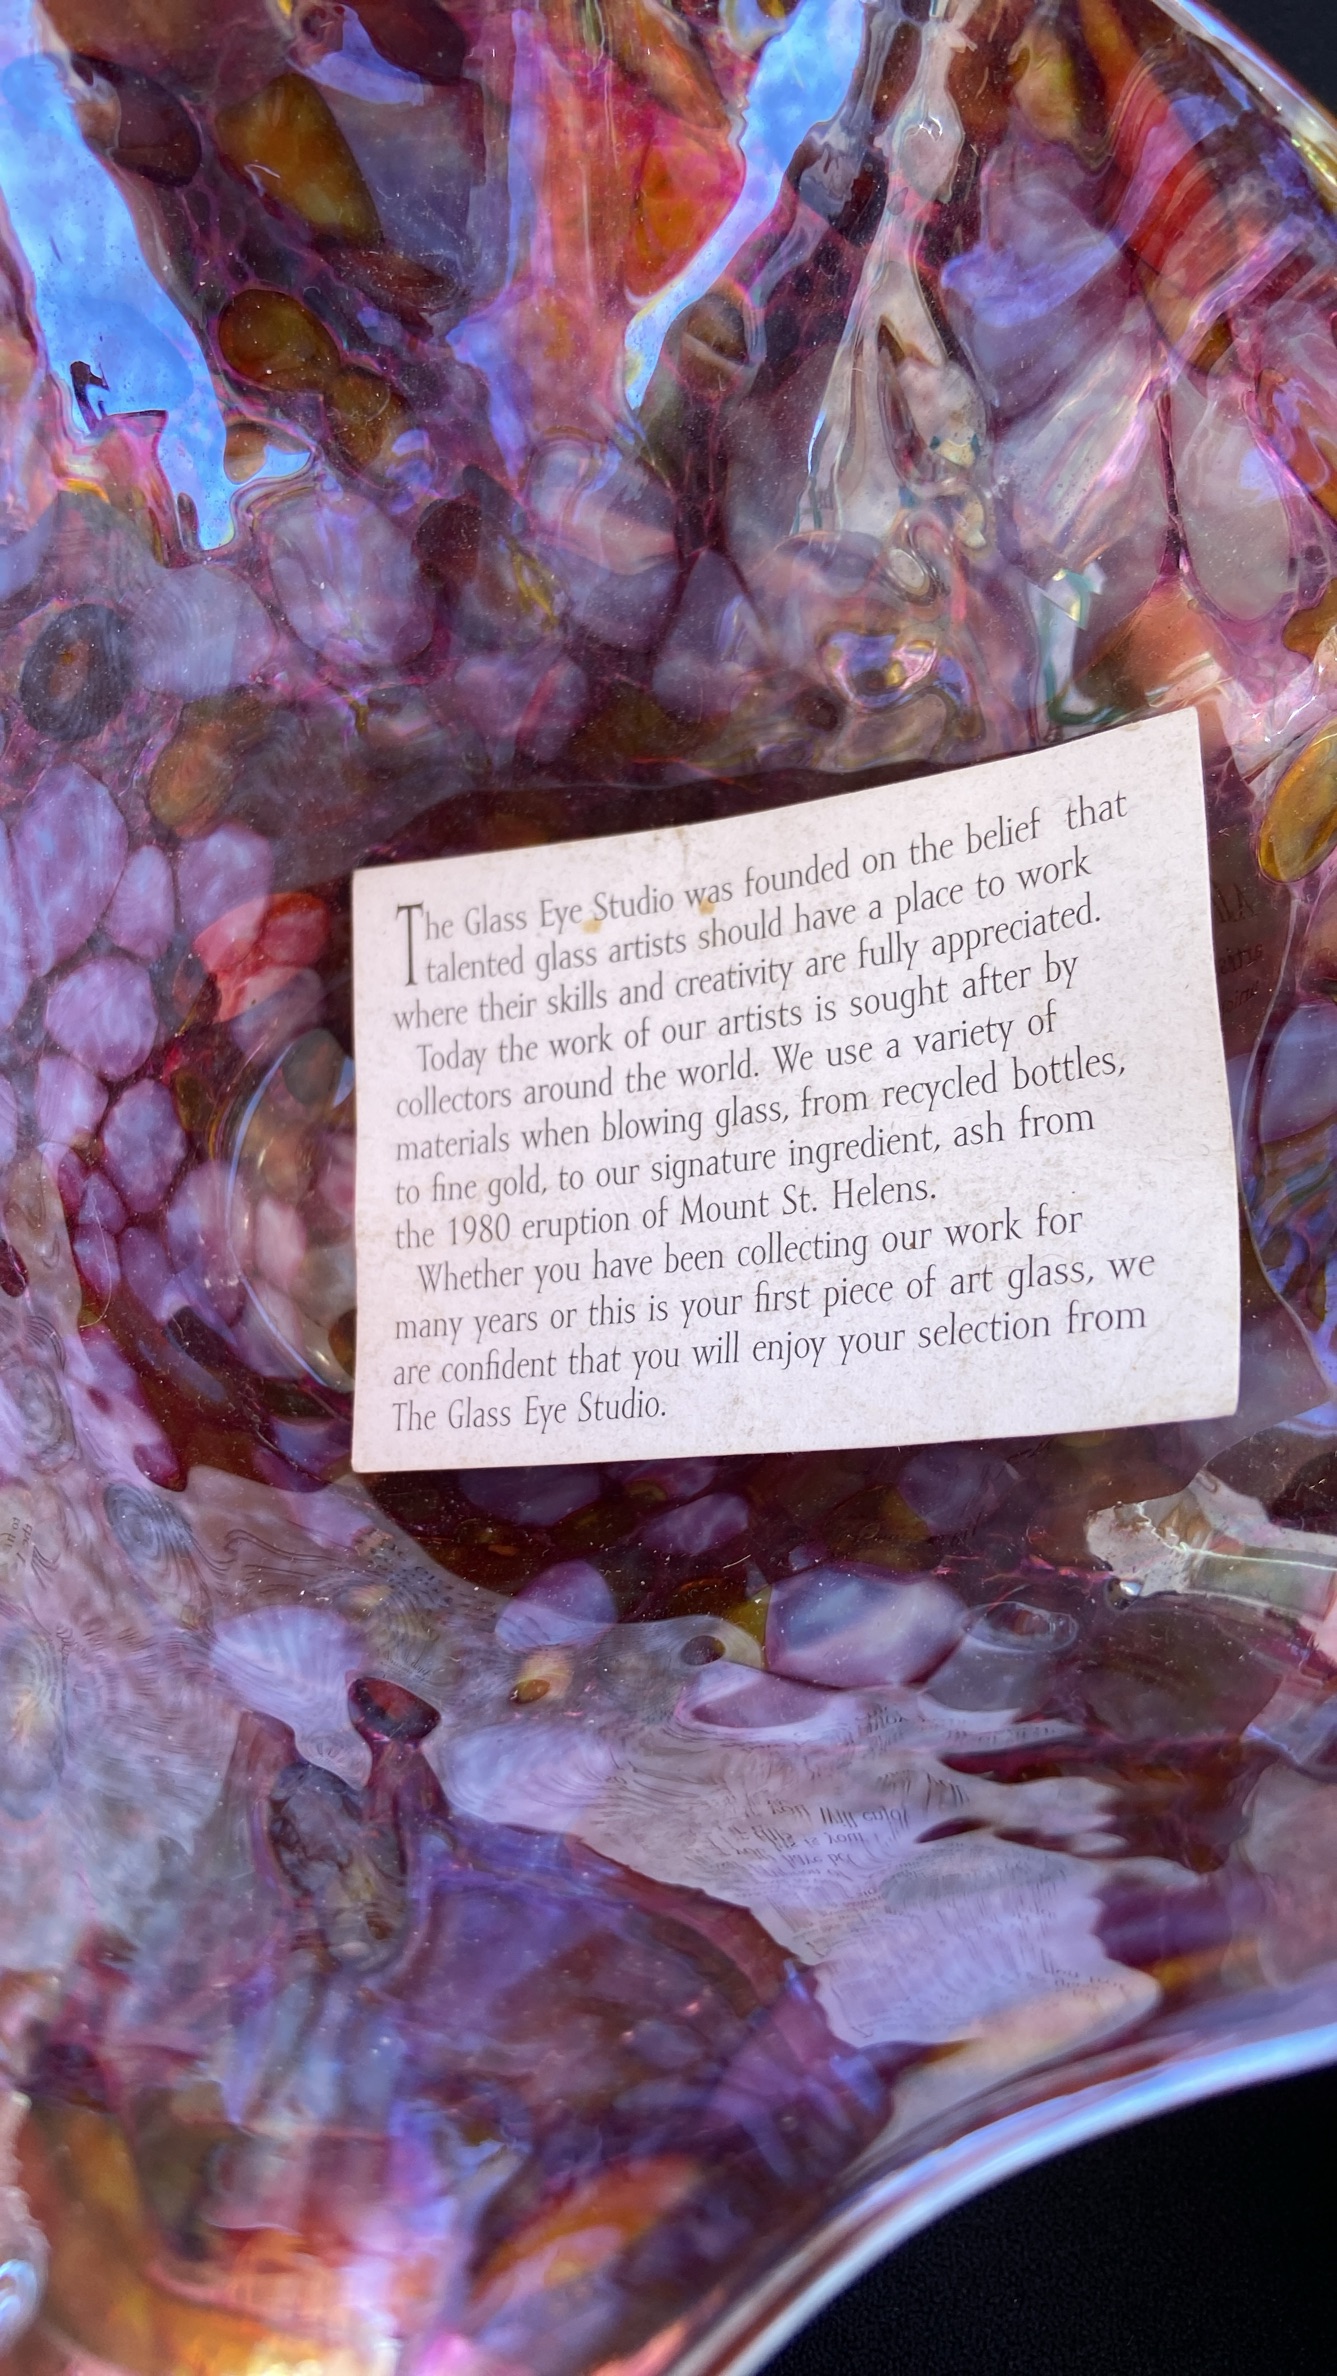 The Glass Eye Studio was founded on the belief that
talented glass artists should have a place to work
where their skills and creativity are fully appreciated.
Today the work of our artists is sought after by
collectors around the world. We use a variety of
materials when blowing glass, from recycled bottles,
to fine gold, to our signature ingredient, ash from
the 1980 eruption of Mount St. Helens.
Whether you have been collecting our work for
many years or this is your first piece of art glass, we
are confident that you will enjoy your selection from
The Glass Eye Studio.